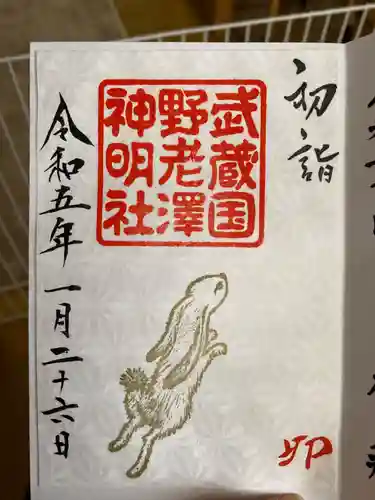 初詣
武蔵国
野老澤
神明社
卯
令和五年一月二十六日